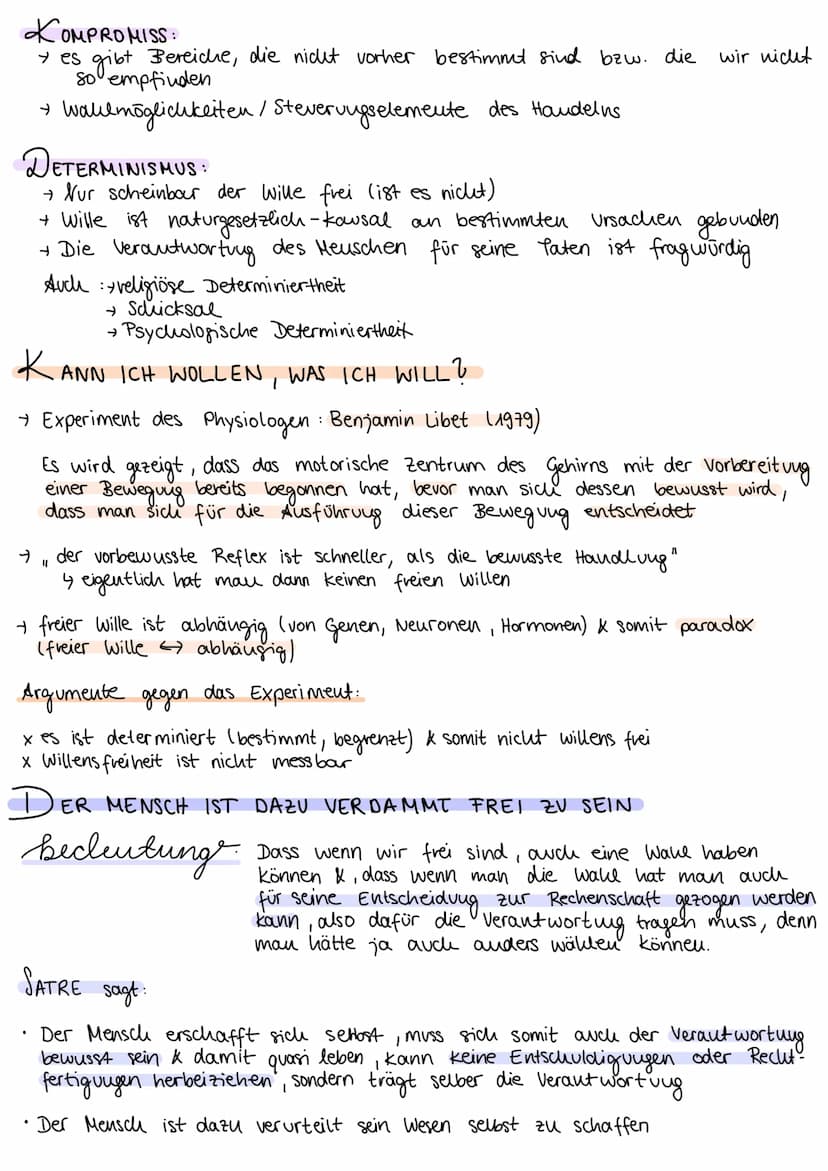 KOMPROMISS:
→ es gibt Bereiche, die nicht vorher bestimmt sind bzw. die wir nicht
so empfinden
→ Wahlmöglichkeiten / Steuerungselemente des Handelns
DETERMINISMUS:
→ Nur scheinbar der Wille frei (ist es nicht)
→ Wille ist naturgesetzlich-kausal an bestimmten Ursachen gebunden
→ Die Verantwortung des Menschen für seine Taten ist fragwürdig
Auch :→ religiöse Determiniertheit
→ Schicksal
→ Psychologische Determiniertheit
KANN ICH WOLLEN, WAS ICH WILL?
→ Experiment des Physiologen : Benjamin Libet (1979)
Es wird gezeigt, dass das motorische Zentrum des Gehirns mit der Vorbereitung
einer Bewegung bereits begonnen hat, bevor man sich dessen bewusst wird,
dass man sich für die Ausführung dieser Bewegung entscheidet
→ „ der vorbewusste Reflex ist schneller, als die bewusste Handlung"
↳ eigentlich hat man dann keinen freien Willen
→ freier Wille ist abhängig (von Genen, Neuronen, Hormonen) & somit paradox
(freier Wille ↔ abhängig)
Argumente gegen das Experiment:
x es ist determiniert (bestimmt, begrenzt) & somit nicht willens frei
x Willensfreiheit ist nicht messbar
DER MENSCH IST DAZU VERDAMMT FREI ZU SEIN
Bedeutung: Dass wenn wir frei sind, auch eine Wahl haben
können &, dass wenn man die Wahl hat man auch
für seine Entscheidung zur Rechenschaft gezogen werden
kann, also dafür die Verantwortung tragen muss, denn
man hätte ja auch anders wählen können.
SATRE sagt:
· Der Mensch erschafft sich selbst, muss sich somit auch der Verantwortung
bewusst sein & damit quasi leben, kann keine Entschuldigungen oder Recht-
fertigungen herbeiziehen, sondern trägt selber die Verantwortung
· Der Mensch ist dazu verurteilt sein Wesen selbst zu schaffen